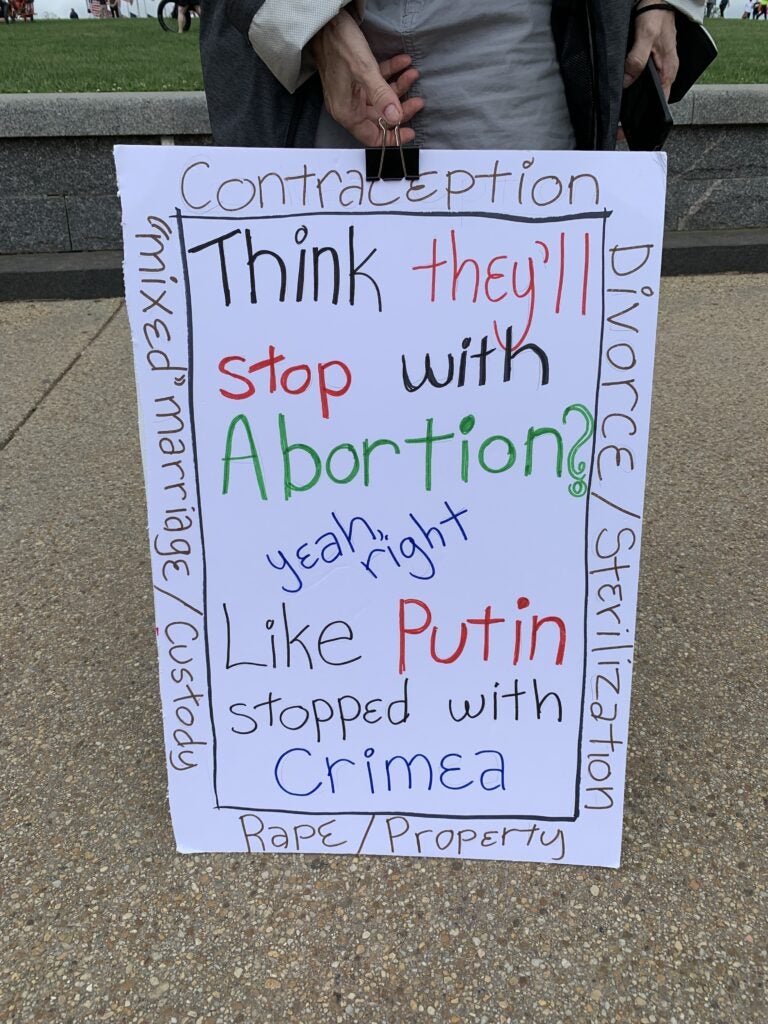 Contraception
Think they'll
stop with
Abortion?
yeah,
right
Like Putin
stopped with
Crimea
Divorce/Sterilization
Rape/Property
"mixed" marriage/Custody